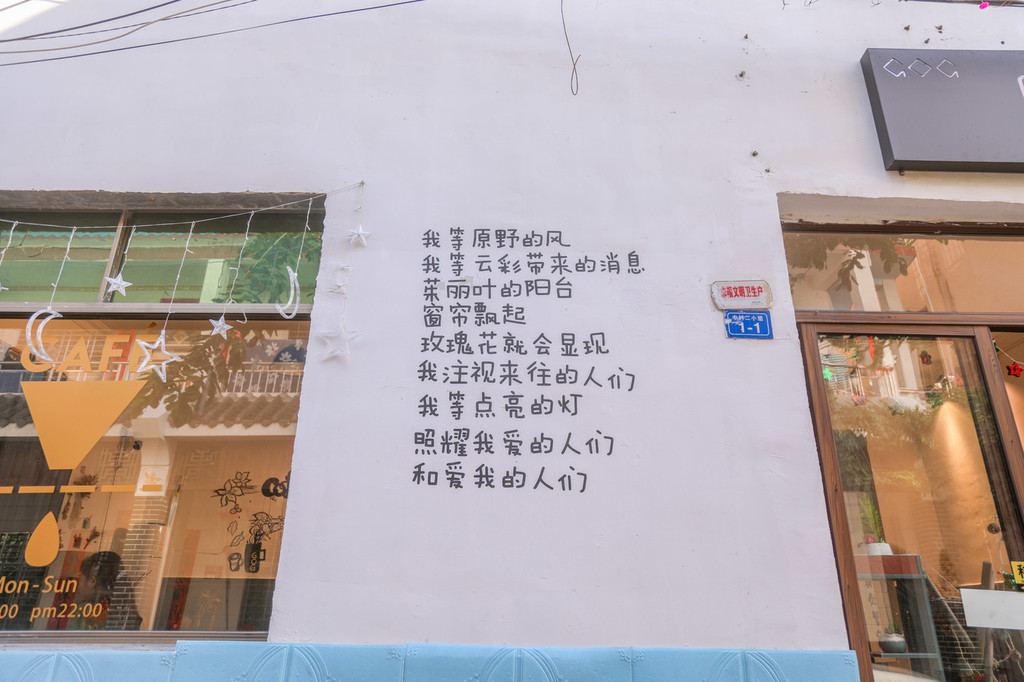 我等原野的风
我等云彩带来的消息
茱丽叶的阳台
窗帘飘起
玫瑰花就会显现
我注视来往的人们
我等点亮的灯
照耀我爱的人们
和爱我的人们
文明卫生户
1-1
CAFE
Mon-Sun
:00 pm22:00
GOG